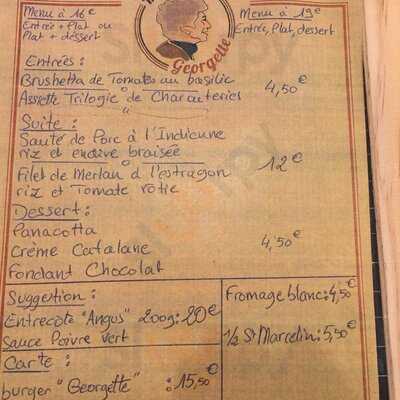 Menu à 16€
Entrée + Plat ou
Plat + dessert
Georgette
Menu à 19€
Entrée, Plat, dessert
Entrées:
Brushetta de Tomates au basilic
Assiette Trilogie de Charcuteries
4,50€
Suite:
Sauté de Porc à l'Indienne
riz et endive braisée
Filet de Merlan à l'estragon
riz et Tomate rotie
12€
Dessert:
Panacotta
Crème Catalane
Fondant Chocolat
4,50€
Suggestion:
Entrecôte "Angus" 200g: 20€
Sauce Poivre vert
Carte:
burger "Georgette" : 15,50€
Fromage blanc: 4,50€
1/2 St Marcelin: 5,50€